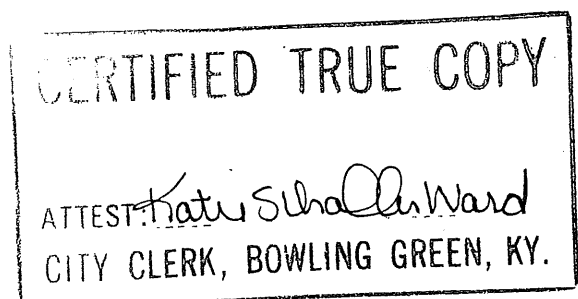 CERTIFIED TRUE COPY
ATTEST: Katie Schaller Ward
CITY CLERK, BOWLING GREEN, KY.